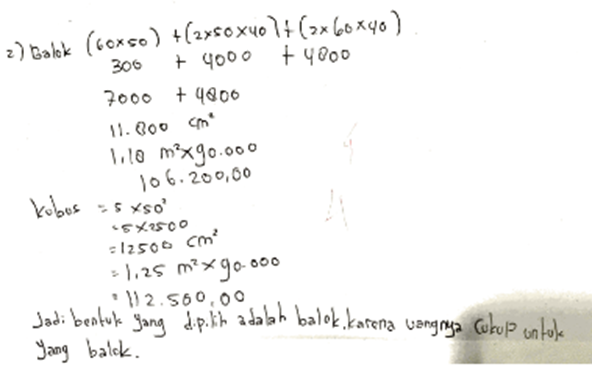 2) Balok (60x50) + (2x50x40) + (2x60x40)
300 + 4000 + 4800
7000 + 4800
11.800 cm²
1,18 m² x 90.000
106.200,00
kubus = 5 x 50²
= 5 x 2500
= 12500 cm²
= 1,25 m² x 90.000
= 112.500,00
Jadi bentuk yang dipilih adalah balok, karena uangnya cukup untuk
yang balok.